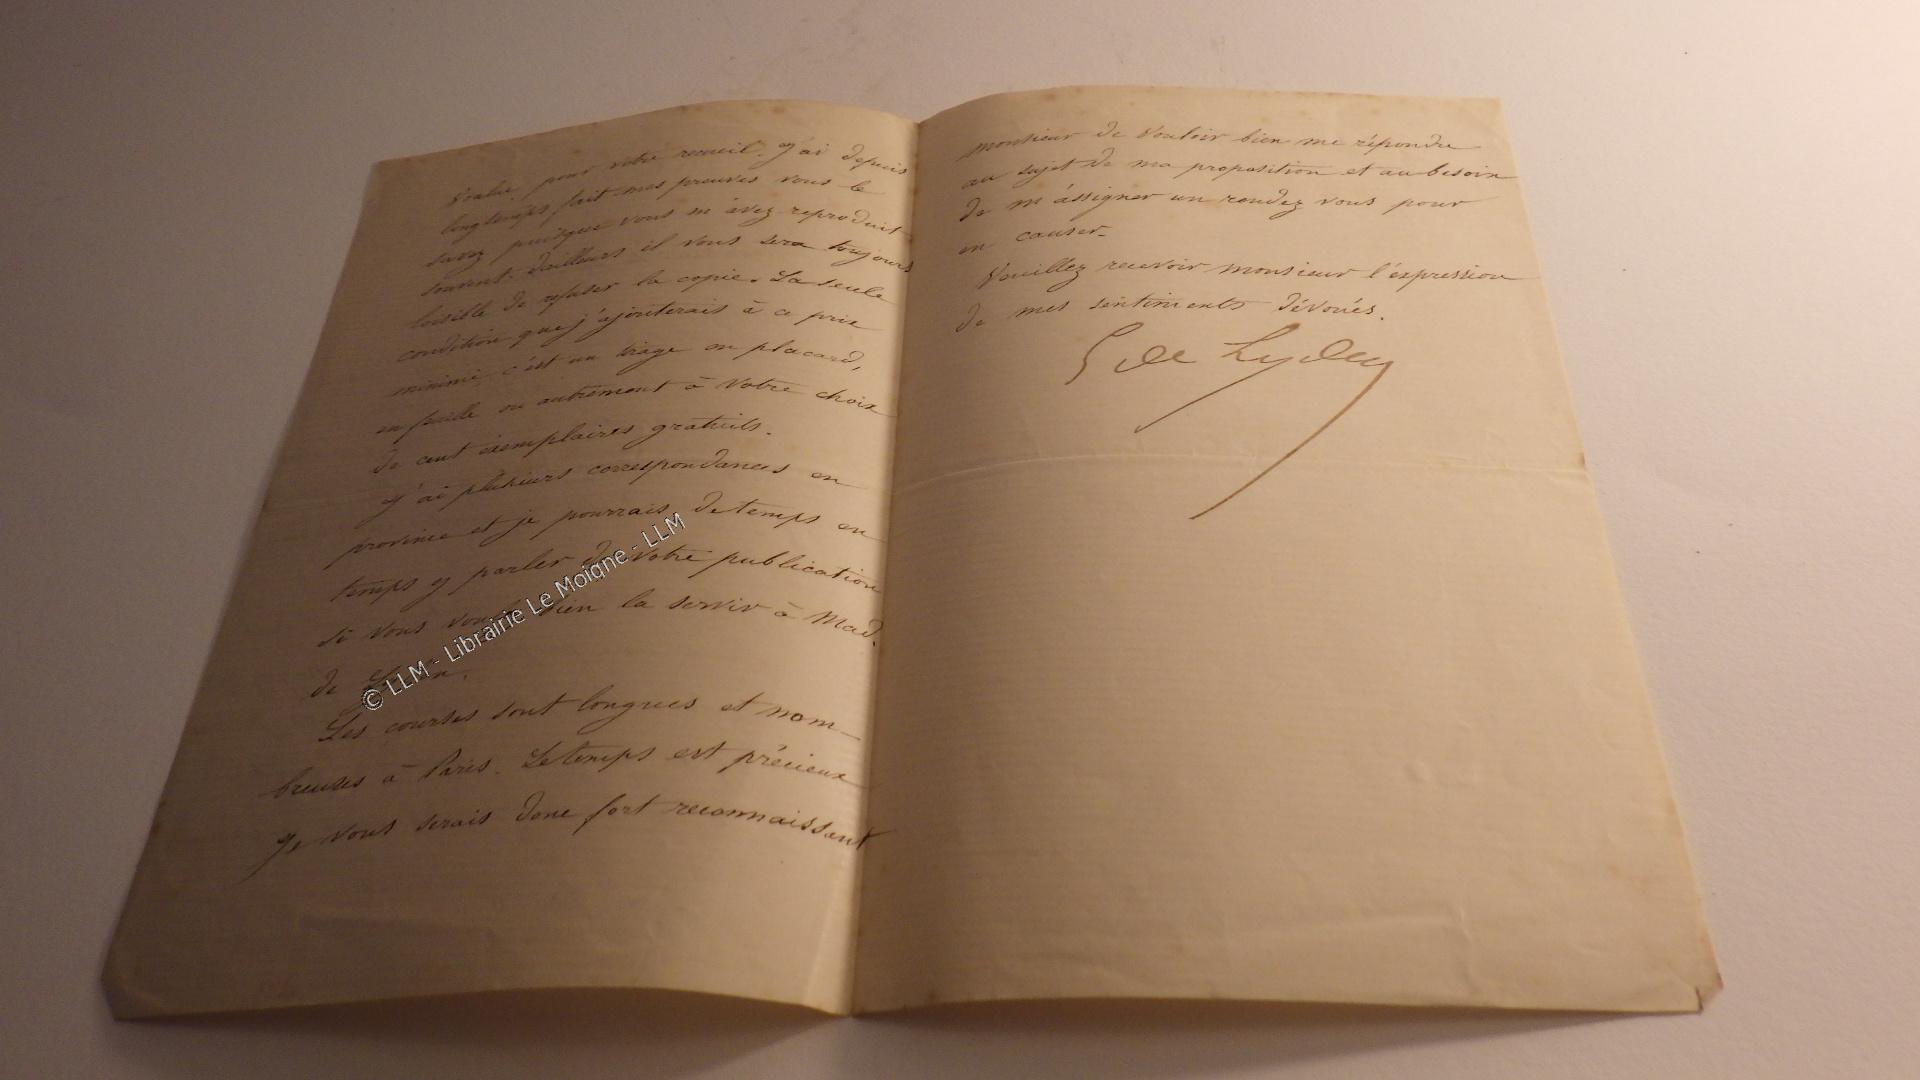 valu pour votre recueil. J'ai depuis
longtemps fait mes preuves vous le
savez puisque vous m'avez reproduit
souvent. D'ailleurs il vous sera toujours
loisible de refuser la copie. La seule
condition que j'ajouterais à ce prix
minime c'est un tirage en placard,
en ou autrement à votre choix
de cent exemplaires gratuits.
J'ai plusieurs correspondances en
province et je pourrais de temps en
temps y parler de votre publication
si vous bien la servir à Mad.
de
Les courses sont longues et nom-
breuses à Paris. Le temps est précieux
Je vous serais donc fort reconnaissant
monsieur de vouloir bien me répondre
au sujet de ma proposition et au besoin
de m'assigner un rendez vous pour
en causer.
Veuillez recevoir monsieur l'expression
de mes sentiments dévoués.
de Lyden
© LLM - Librairie Le Moigne - LLM